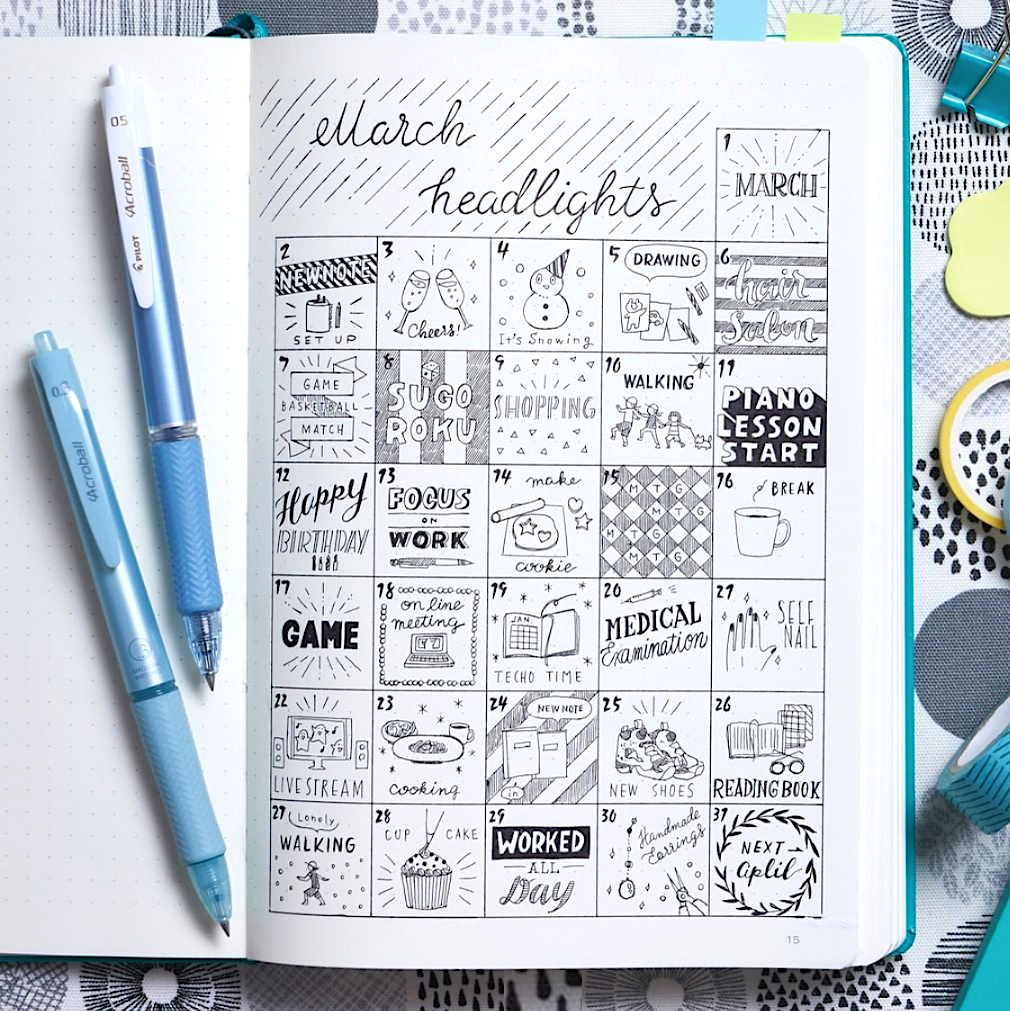 05
Acroball
PILOT
0.3
Acroball
March
headlights
1
MARCH
2
NEW NOTE
SET UP
3
Cheers!
4
It's Snowing
5
DRAWING
6
hair
Salon
7
GAME
BASKETBALL
MATCH
8
SUGO
ROKU
9
SHOPPING
10
WALKING
11
PIANO
LESSON
START
12
Happy
BIRTHDAY
13
FOCUS
ON
WORK
14
make
cookie
15
M T G
M T G
M T G
M T G
16
BREAK
17
GAME
18
on line
meeting
19
JAN
TECHO TIME
20
MEDICAL
Examination
21
SELF
NAIL
22
LIVE STREAM
23
cooking
24
NEW NOTE
in
25
NEW SHOES
26
READING BOOK
27
Lonely
WALKING
28
CUP CAKE
29
WORKED
ALL
Day
30
Handmade
Earrings
31
NEXT
Aplil
15